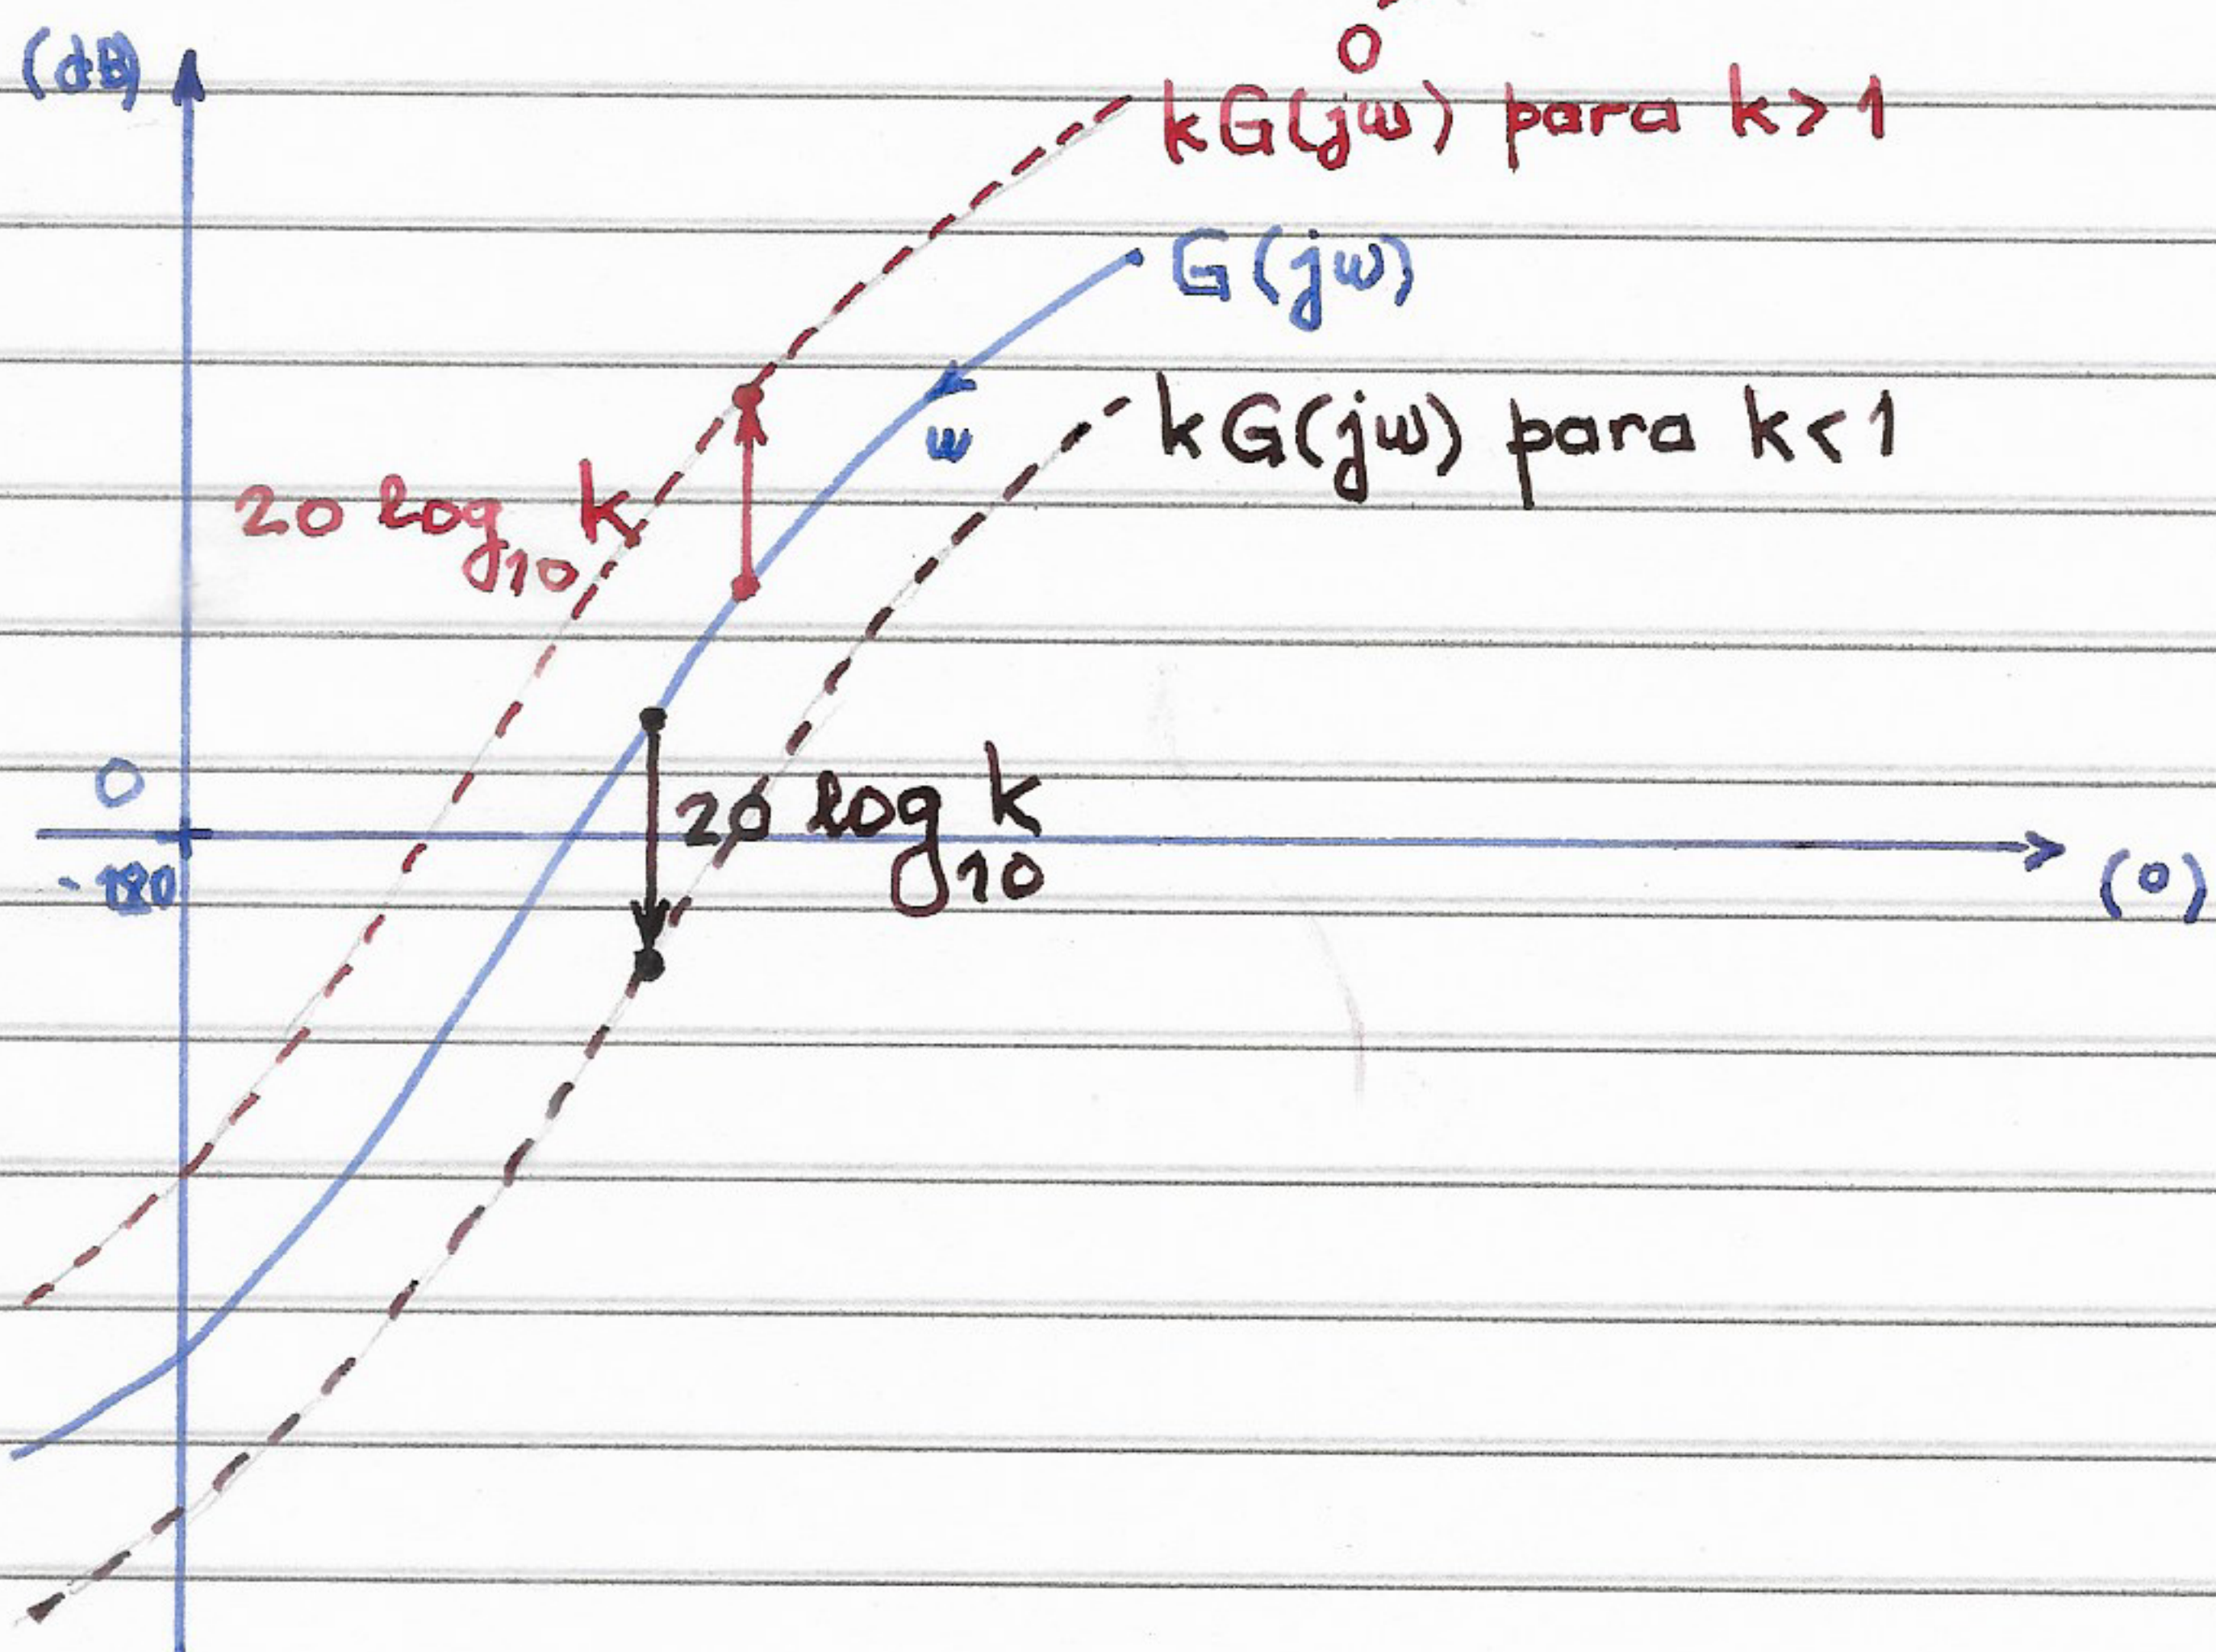 0
(dB)
kG(jω) para k>1
G(jω)
ω
kG(jω) para k<1
20 log₁₀ k
0
20 log₁₀ k
-180
(º)